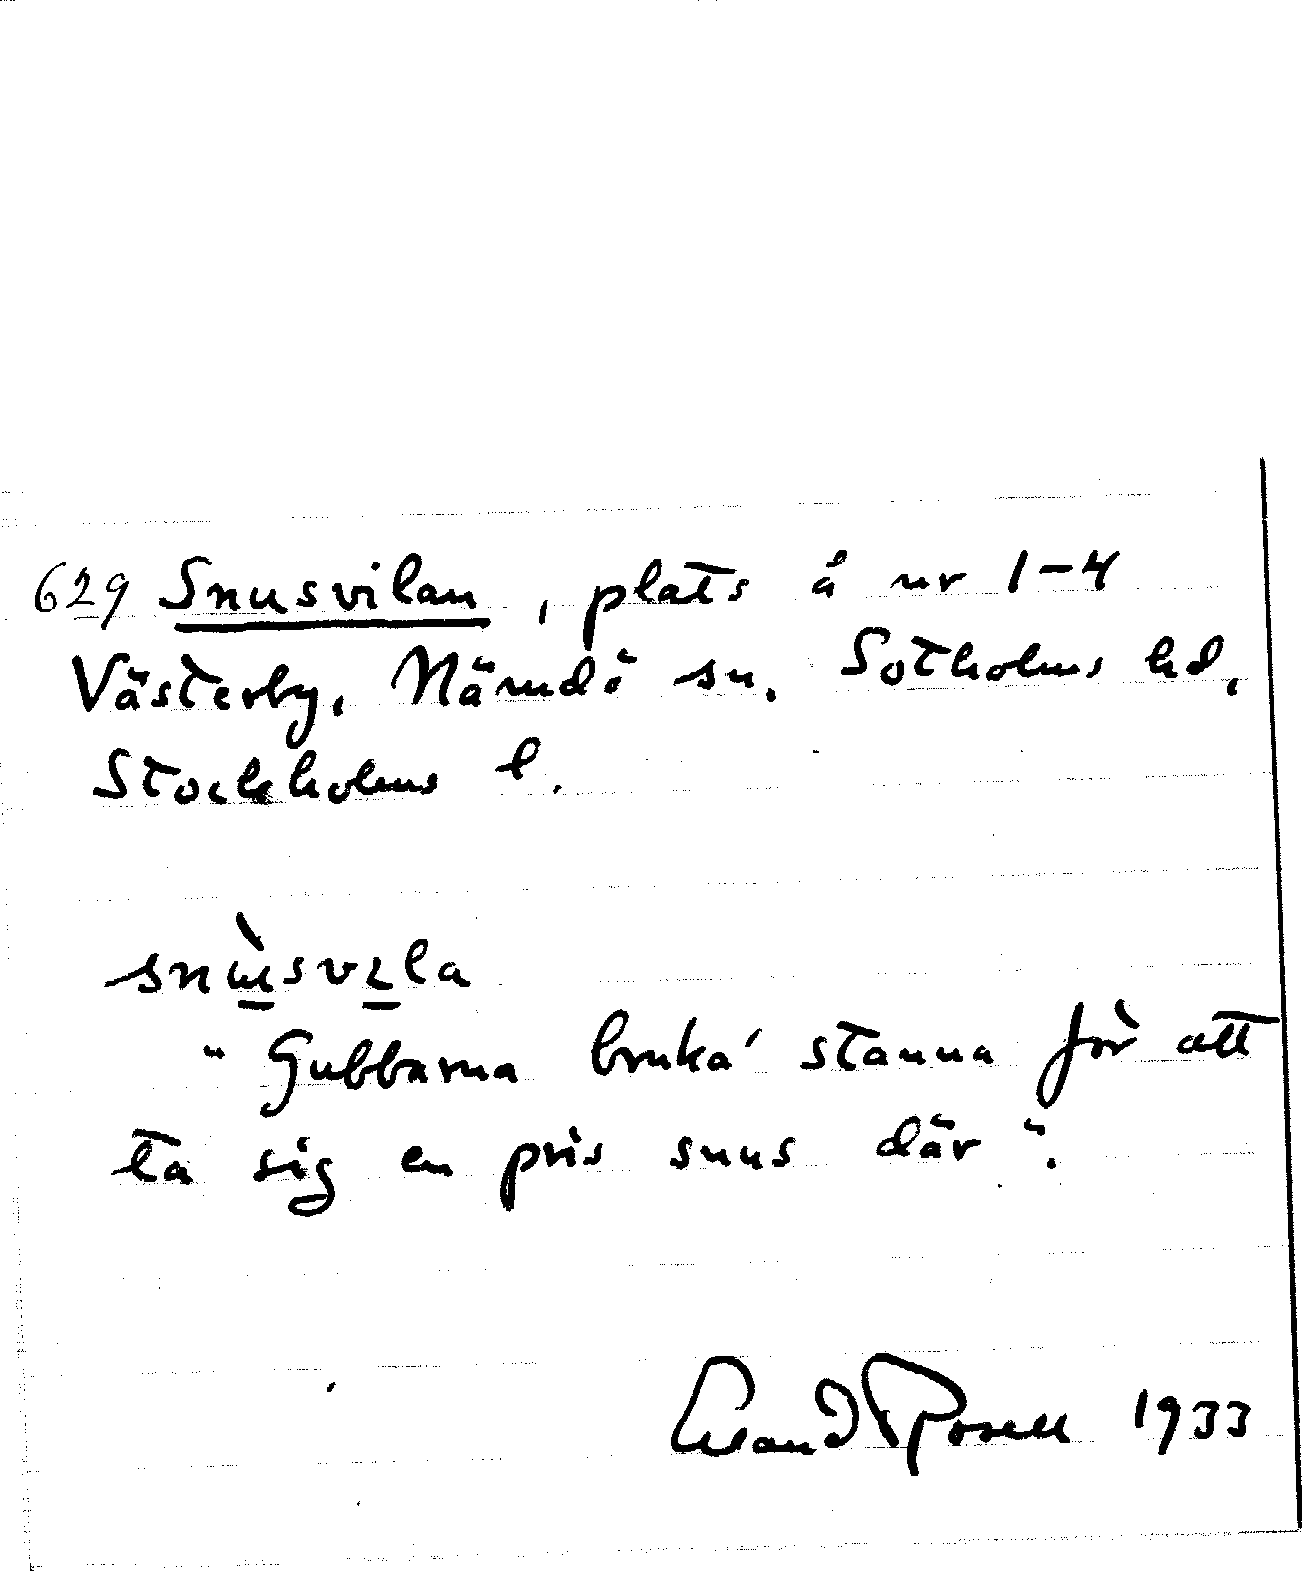 629 Snusvilan, plats å nr 1-4
Västerby, Nämdö sn. Sotholms hd,
Stockholms l.
snùsvıla
"Gubbarna bruka' stanna för att
ta sig en pris snus där".
Erland Rosell 1933